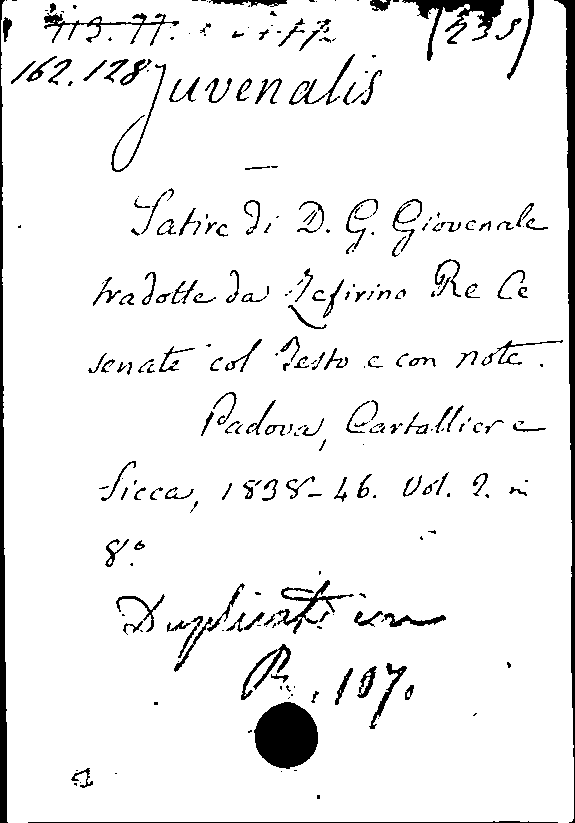 113.77.
(235)
162.128
Juvenalis
—
Satire di D. G. Giovenale
tradotte da Zefirino Re Ce
senate col Testo e con note.
Padova, Cartallier e
Sicca, 1838-46. Vol. 2. in
8°
Duplicate con
R. 107.